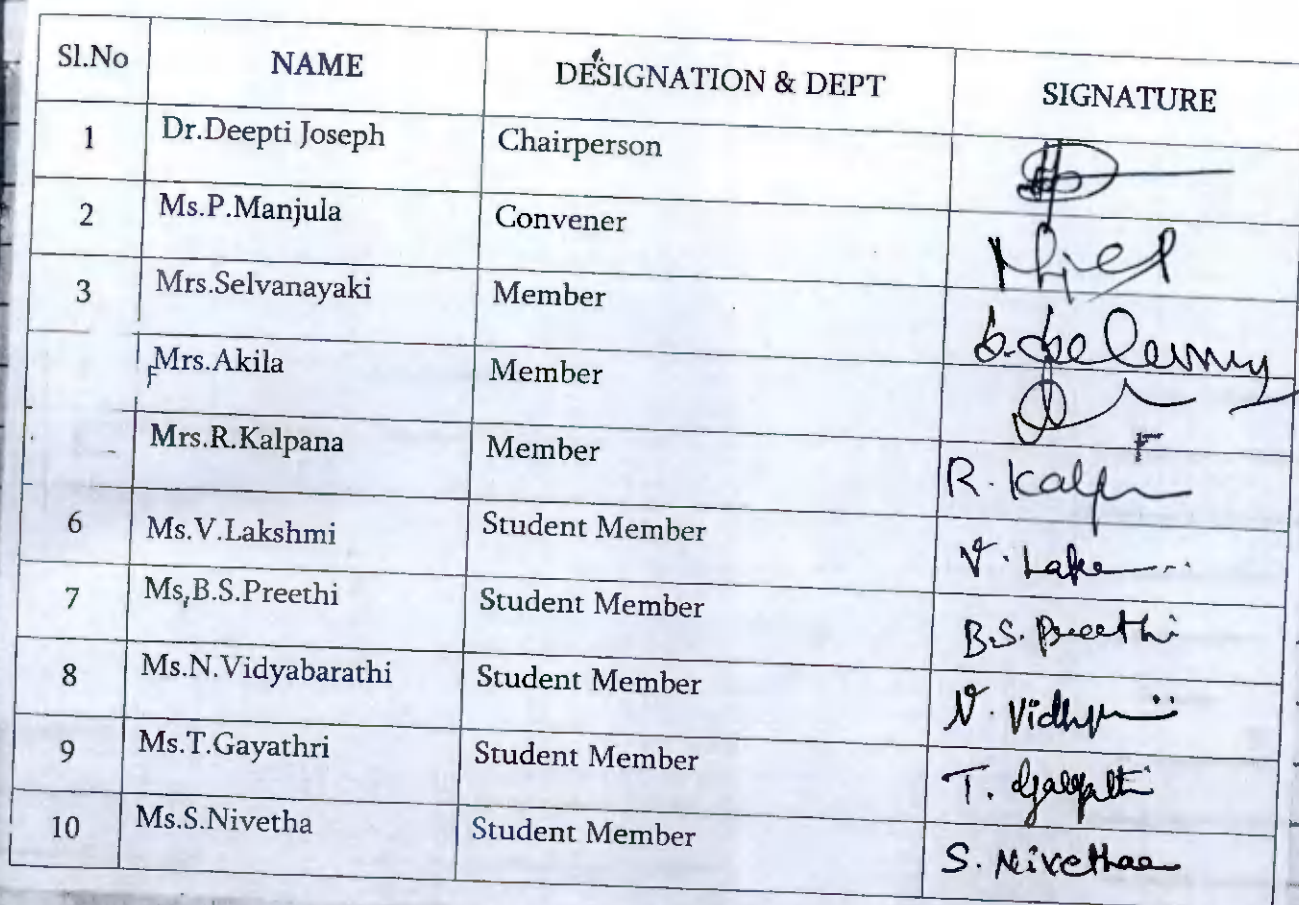 Sl.No NAME DESIGNATION & DEPT SIGNATURE
1 Dr.Deepti Joseph Chairperson
2 Ms.P.Manjula Convener
3 Mrs.Selvanayaki Member
Mrs.Akila Member
Mrs.R.Kalpana Member R.
6 Ms.V.Lakshmi Student Member V.
7 Ms.B.S.Preethi Student Member B.S. Preethi
8 Ms.N.Vidyabarathi Student Member N.
9 Ms.T.Gayathri Student Member T.
10 Ms.S.Nivetha Student Member S. Nivethaa